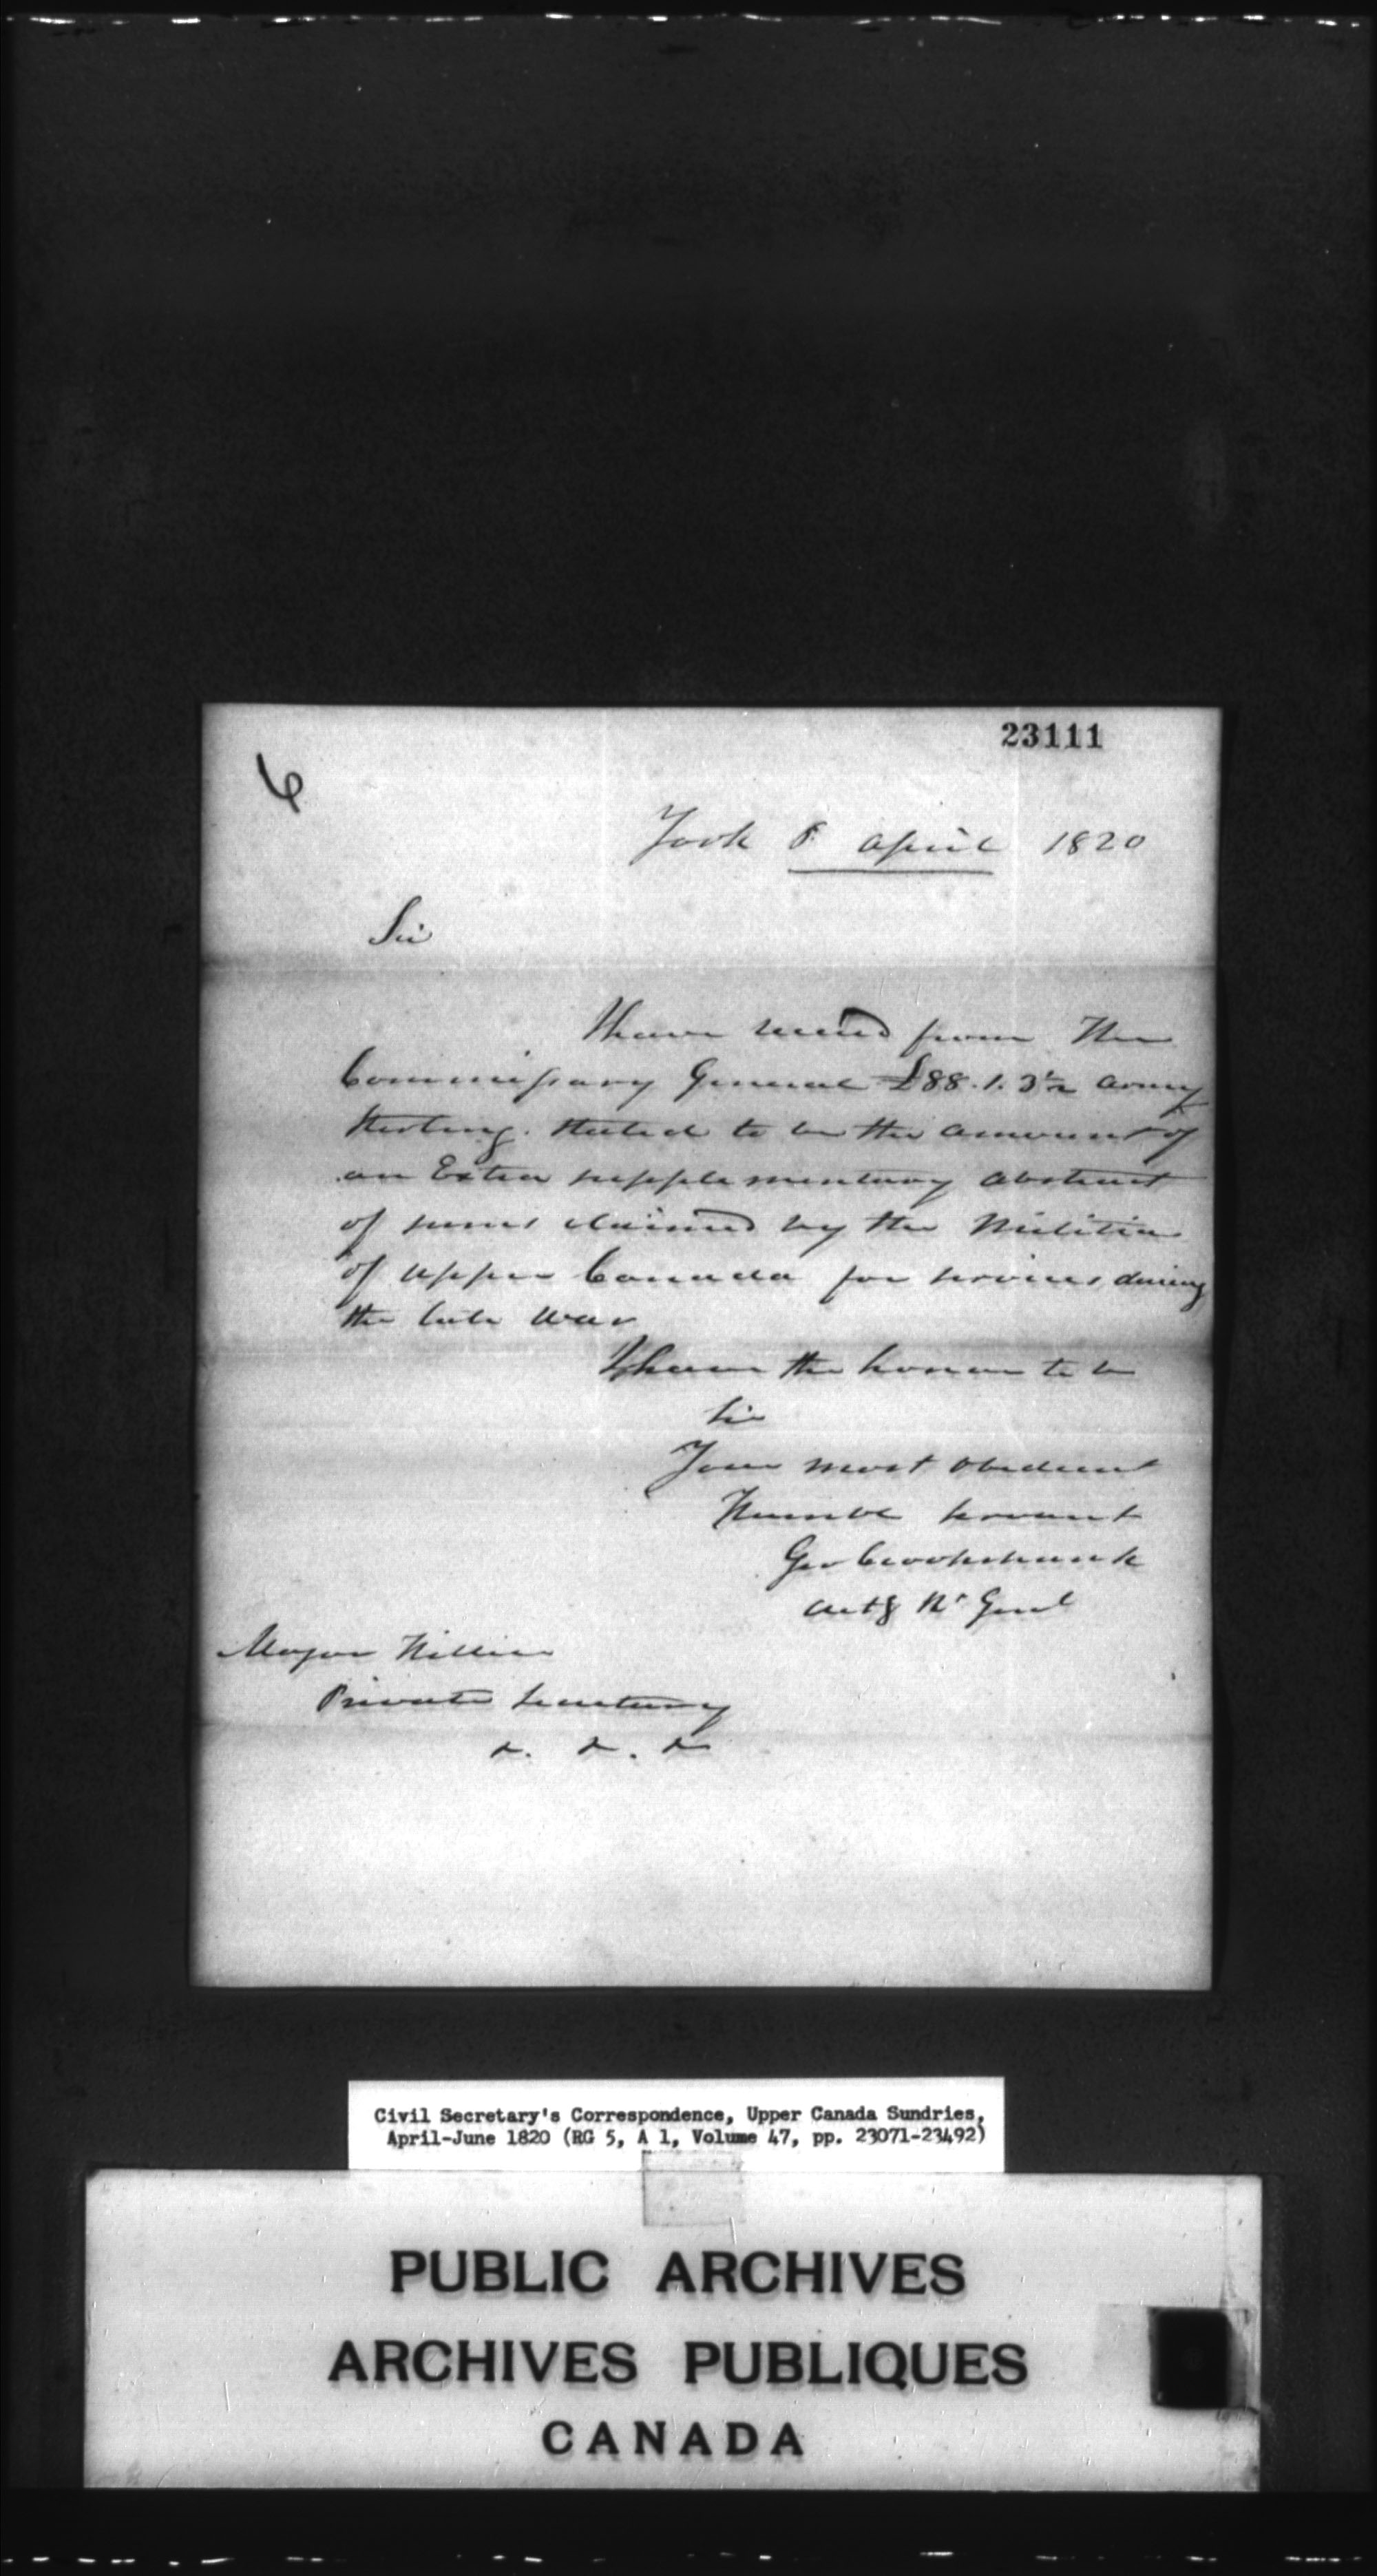 23111
6
York 8 April 1820
Sir
I have received from the
Commissary General £88.1.3½ army
Sterling. Stated to be the amount of
an Extra supplementary abstract
of sums claimed by the Militia
of upper Canada for services during
the late War
I have the honor to be
Sir
Your most obedient
Humble servant
Geo Crookshank
Actg Rr Genl
Major Hillier
Private Secretary
&. &. &
Civil Secretary's Correspondence, Upper Canada Sundries,
April-June 1820 (RG 5, A 1, Volume 47, pp. 23071-23492)
PUBLIC ARCHIVES
ARCHIVES PUBLIQUES
CANADA